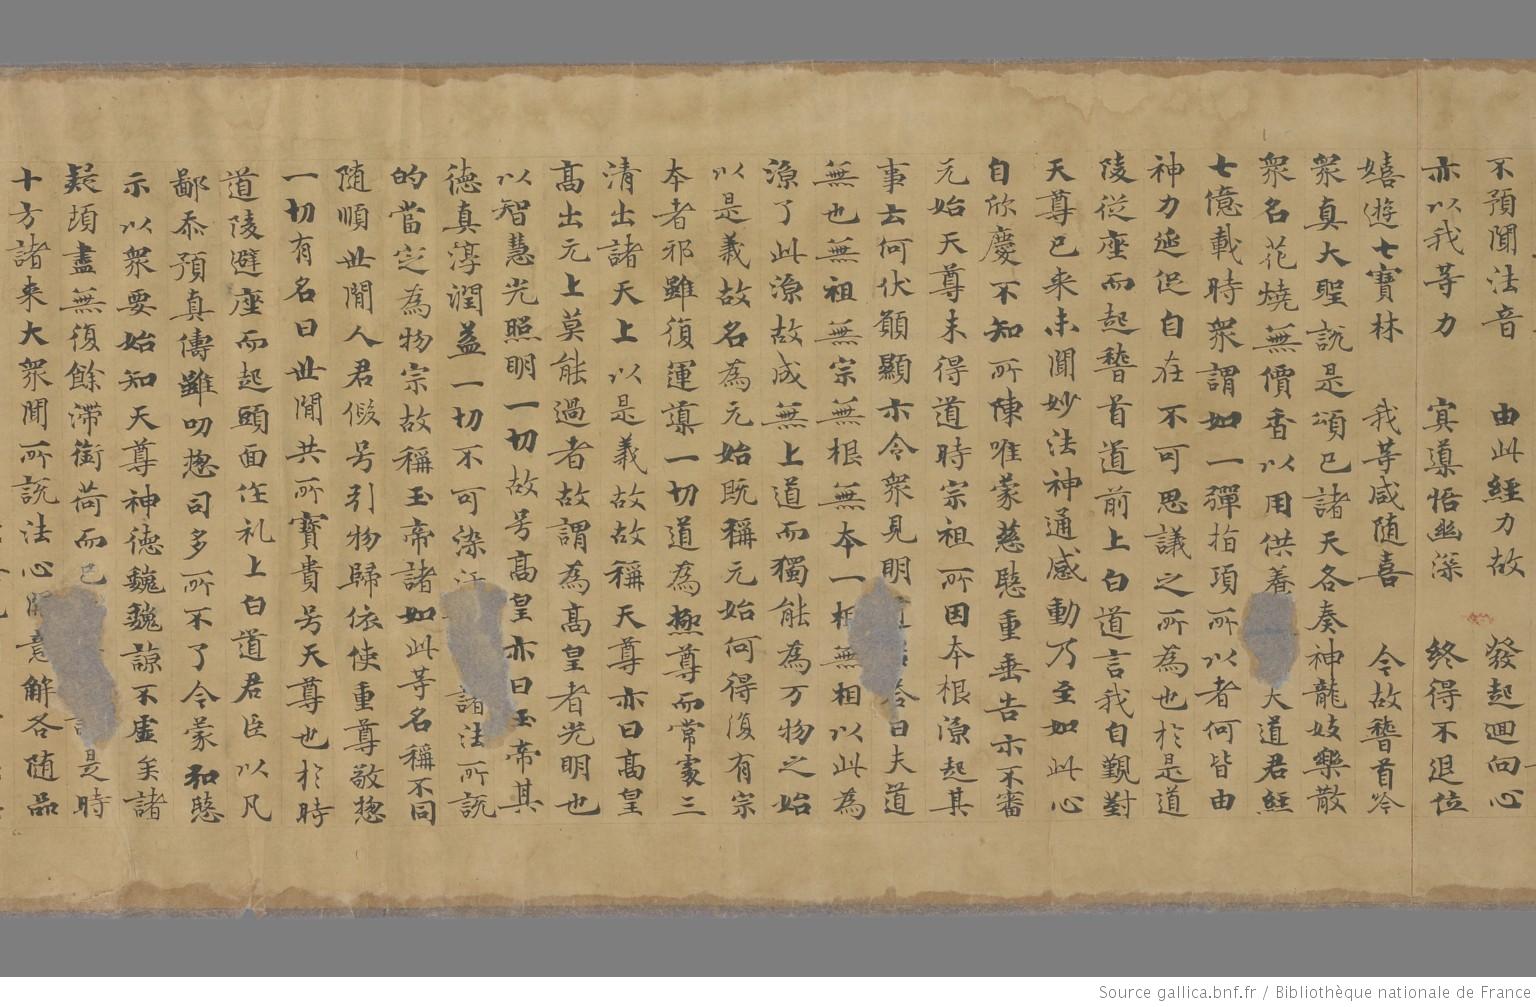 不預聞法音 由此經力故 發起迴向心
亦以我等力 冥導悟幽深 終得不退位
嬉遊七寶林 我等咸随喜 令故𥡴首吟
衆真大聖說是頌已諸天各奏神龍妓樂散
衆名花燒無價香以用供養 大道君經
七億載時衆謂如一彈指頃所以者何皆由
神力延促自在不可思議之所為也於是道
陵從座而起𥡴首道前上白道言我自覲對
天尊已来未聞妙法神通感動乃至如此心
自欣慶不知所陳唯蒙慈愍重垂告亦不審
元始天尊未得道時宗祖所因本根源起其
事云何伏願顯示令衆見明 答曰夫道
無也無祖無宗無根無本一相無相以此為
源了此源故成無上道而獨能為万物之始
以是義故名為元始既稱元始何得復有宗
本者邪雖復運導一切道為極尊而常宴三
清出諸天上以是義故故稱天尊亦曰高皇
高出元上莫能過者故謂為高皇者光明也
以智慧光照明一切故号高皇亦曰玉帝其
德真淳潤益一切不可染 諸法所說
的當定為物宗故稱玉帝諸如此等名稱不同
随順世間人君假号引物歸依使重尊敬惣
一切有名曰世間共所寶貴号天尊也於時
道陵避座而起頭面作礼上白道君臣以凡
鄙忝預真儔雖叨惣司多所不了今蒙和愍
示以衆要始知天尊神德巍巍諒不虛矣諸
疑頓盡無復餘滯銜荷而已 是時
十方諸来大衆聞所說法心 意解各随品